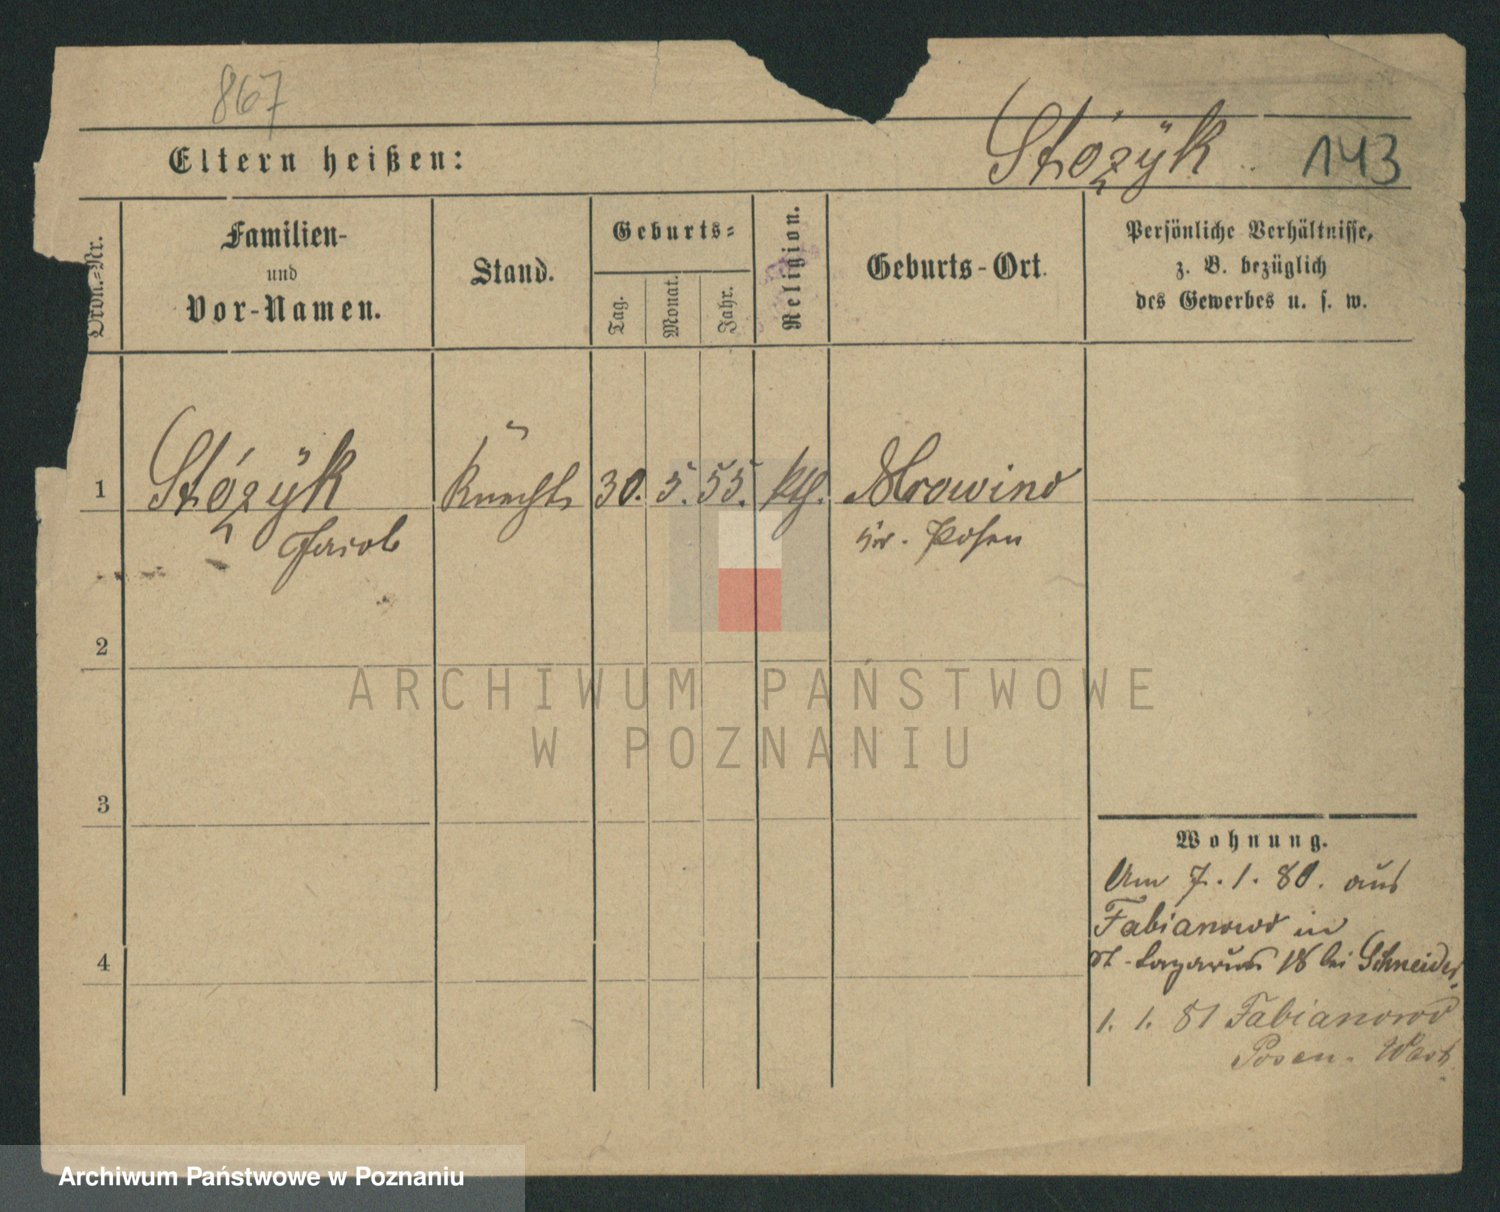 867
Stózÿk
143
Eltern heißen:
Ordn.-Nr.
Familien-
und
Vor-Namen.
Stand.
Geburts-
Tag.
Monat.
Jahr.
Religion.
Geburts-Ort.
Persönliche Verhältnisse,
z. B. bezüglich
des Gewerbes u. s. w.
1
Stózÿk
Jacob
Knecht
30.
5.
55.
kth.
Mrowino
Kr. Posen
2
3
4
Wohnung.
Am 7.1.80. aus
Fabianowo in
St. Lazarus 18 bei Schneider.
1. 1. 81 Fabianowo
Posen. West
ARCHIWUM PAŃSTWOWE
W POZNANIU
Archiwum Państwowe w Poznaniu